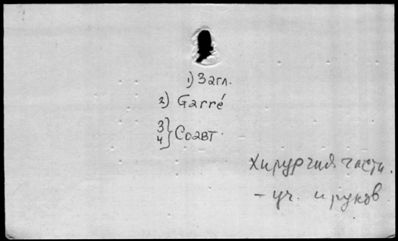 1) Загл.
2) Garré
3
4 } Соавт.
Хирургия частн.
- уч. и руков